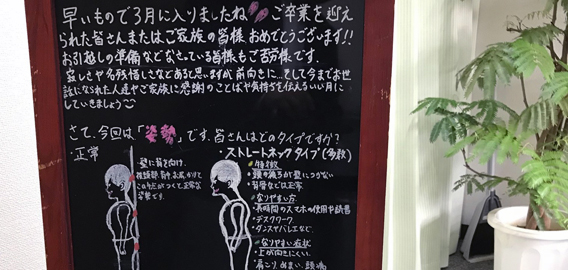 早いもので3月に入りましたね ご卒業を迎え
られた皆さんまたは、ご家族の皆様 おめでとうございます!!
お引越しの準備などなさっている皆様もご苦労様です.
寂しさや名残惜しさなどあると思いますが前向きに...そして今までお世
話になられた人達やご家族に感謝のことばや気持ちを伝えるいい月に
していきましょう
さて、今回は「姿勢」です。皆さんはどのタイプですか?
・正常
壁に背を向け、
後頭部、背中、お尻、かかと
この4点がつくと、正常な
姿勢です。
・ストレートネックタイプ(多数)
特徴
・頭の後ろが壁につかない
・背骨などは正常
なりやすい方
・長時間のスマホの使用や読書
・デスクワーク
・ダンスやバレエなど、
なりやすい症状
・上が向きにくい、
肩こり、めまい、頭痛